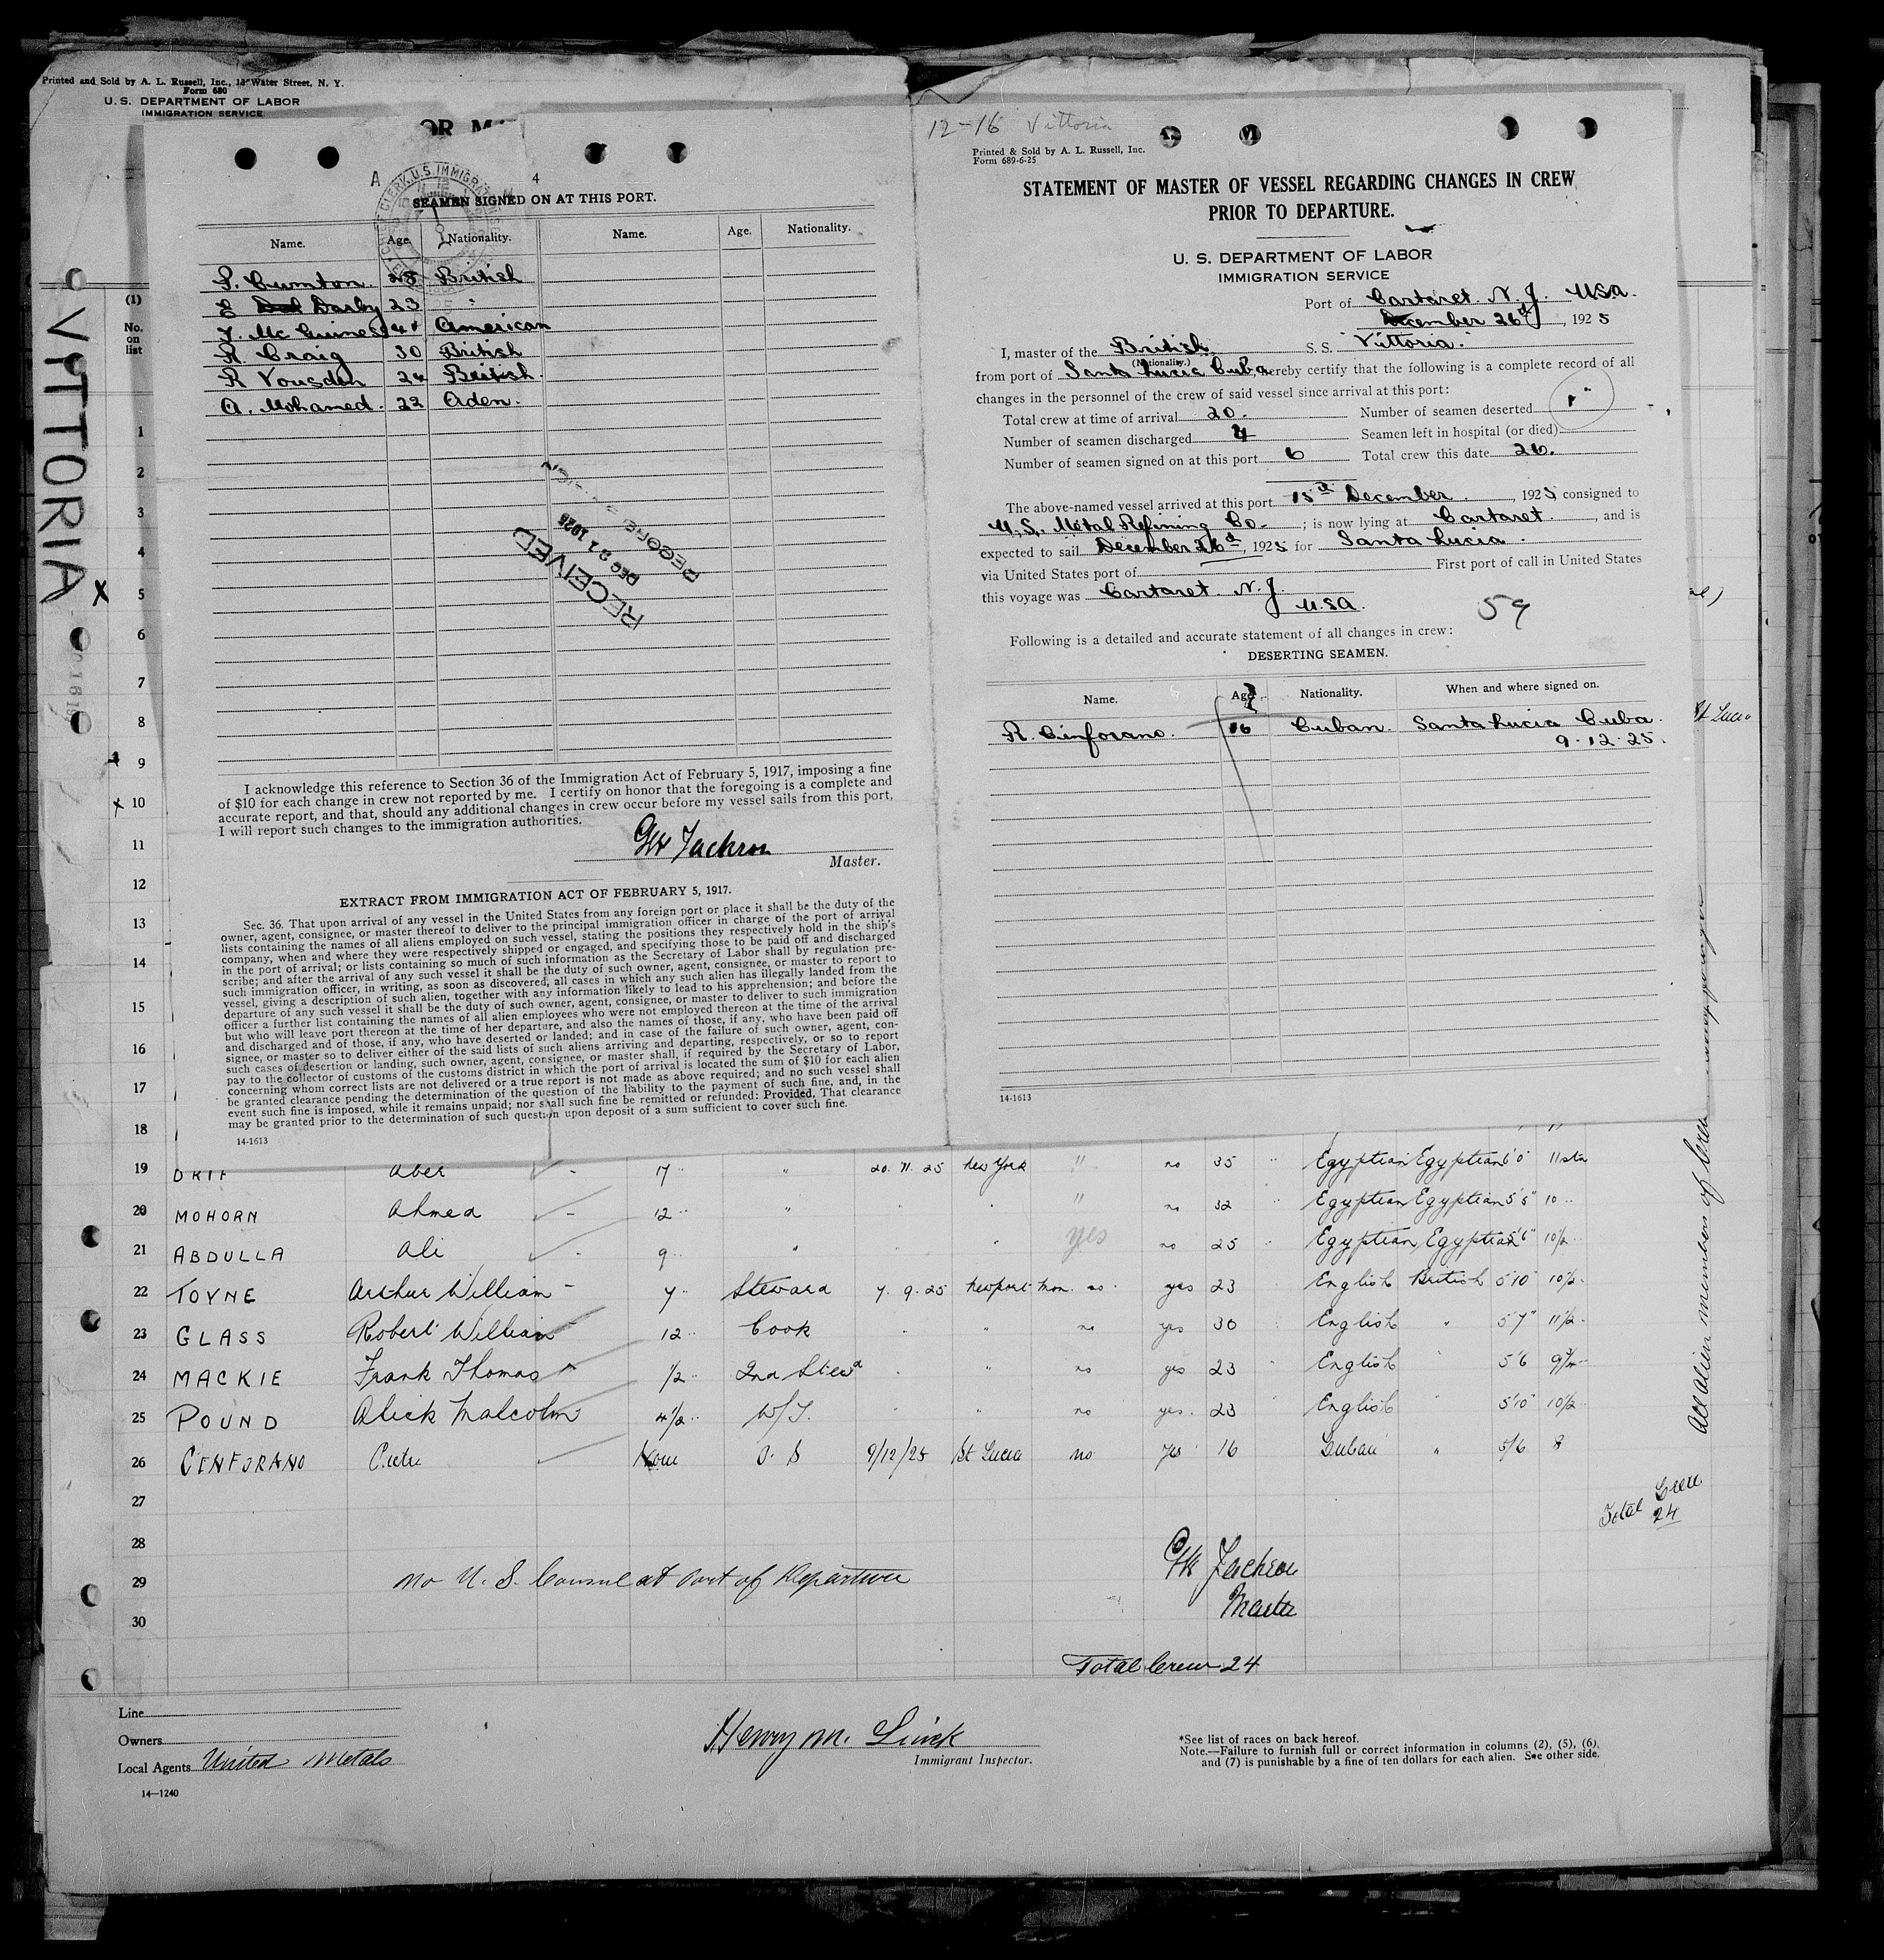 Printed and Sold by A. L. Russell, Inc., Water Street, N. Y.
Form 680
U. S. DEPARTMENT OF LABOR
IMMIGRATION SERVICE
VITTORIA
4
SEAMEN SIGNED ON AT THIS PORT.
Name. Age. Nationality. Name. Age. Nationality.
28 British
E Darby 23 "
Mc Guiness American
R. Craig 30 British
R Vousden 24 British.
A. Mohamed. 22 Aden.
RECEIVED
DEC 21 1925
I acknowledge this reference to Section 36 of the Immigration Act of February 5, 1917, imposing a fine
of $10 for each change in crew not reported by me. I certify on honor that the foregoing is a complete and
accurate report, and that, should any additional changes in crew occur before my vessel sails from this port,
I will report such changes to the immigration authorities.
Jackson
Master.
EXTRACT FROM IMMIGRATION ACT OF FEBRUARY 5, 1917.
Sec. 36. That upon arrival of any vessel in the United States from any foreign port or place it shall be the duty of the
owner, agent, consignee, or master thereof to deliver to the principal immigration officer in charge of the port of arrival
lists containing the names of all aliens employed on such vessel, stating the positions they respectively hold in the ship's
company, when and where they were respectively shipped or engaged, and specifying those to be paid off and discharged
in the port of arrival; or lists containing so much of such information as the Secretary of Labor shall by regulation pre-
scribe; and after the arrival of any such vessel it shall be the duty of such owner, agent, consignee, or master to report to
such immigration officer, in writing, as soon as discovered, all cases in which any such alien has illegally landed from the
vessel, giving a description of such alien, together with any information likely to lead to his apprehension; and before the
departure of any such vessel it shall be the duty of such owner, agent, consignee, or master to deliver to such immigration
officer a further list containing the names of all alien employees who were not employed thereon at the time of the arrival
but who will leave port thereon at the time of her departure, and also the names of those, if any, who have been paid off
and discharged and of those, if any, who have deserted or landed; and in case of the failure of such owner, agent, con-
signee, or master so to deliver either of the said lists of such aliens arriving and departing, respectively, or so to report
such cases of desertion or landing, such owner, agent, consignee, or master shall, if required by the Secretary of Labor,
pay to the collector of customs of the customs district in which the port of arrival is located the sum of $10 for each alien
concerning whom correct lists are not delivered or a true report is not made as above required; and no such vessel shall
be granted clearance pending the determination of the question of the liability to the payment of such fine, and, in the
event such fine is imposed, while it remains unpaid; nor shall such fine be remitted or refunded: Provided, That clearance
may be granted prior to the determination of such question upon deposit of a sum sufficient to cover such fine.
14-1613
12-16 Vittoria
Printed & Sold by A. L. Russell, Inc.
Form 689-6-25
STATEMENT OF MASTER OF VESSEL REGARDING CHANGES IN CREW
PRIOR TO DEPARTURE.
U. S. DEPARTMENT OF LABOR
IMMIGRATION SERVICE
Port of Cartaret. N. J. USA.
December 26th, 1925
I, master of the British S. S. Vittoria.
(Nationality.)
from port of Santa Lucia Cuba, hereby certify that the following is a complete record of all
changes in the personnel of the crew of said vessel since arrival at this port:
Total crew at time of arrival 20. Number of seamen deserted 1
Number of seamen discharged 4 Seamen left in hospital (or died)
Number of seamen signed on at this port 6 Total crew this date 26.
The above-named vessel arrived at this port 15th December, 1925 consigned to
U.S. Metal Refining Co.; is now lying at Cartaret., and is
expected to sail December 26th, 1925 for Santa Lucia.
via United States port of First port of call in United States
this voyage was Cartaret. N.J.
USA.
59
Following is a detailed and accurate statement of all changes in crew:
DESERTING SEAMEN.
Name. Age. Nationality. When and where signed on.
R. Cinforano. 16 Cuban. Santa Lucia Cuba.
9.12.25.
14-1613
(1)
No.
on
list
1
2
3
4
5
6
7
8
9
10
11
12
13
14
15
16
17
18
19 Aber 17 " 20.11.25 New York " no 35 " Egyptian Egyptian
20 MOHORN Ahmed 12 " " no 32 " Egyptian Egyptian 5'5" 10
21 ABDULLA Ali 9 " " yes no 25 " Egyptian Egyptian 5'6" 10½
22 TOYNE Arthur William 7 Steward 7.9.25 Newport Mon. no yes 23 English British 5'10" 10½
23 GLASS Robert William 12 Cook " " no yes 30 English " 5'7" 11½
24 MACKIE Frank Thomas ½ 2nd Stewd " " no yes 23 " English " 5'6
25 POUND Alick Malcolm 4½ W/T. " " no yes 23 " English " 5'10" 10½
26 CENFORANO None O. S 9/12/25 St Lucia no yes 16 Cuban " 5/6 8
27
28
29
30
All alien members of Crew
Total Crew
24
No U. S. Consul at Port of Departure
Jackson
Master
Total Crew 24
Line
Owners
Local Agents United Metals
14—1240
Henry M. Linck
Immigrant Inspector.
*See list of races on back hereof.
Note.—Failure to furnish full or correct information in columns (2), (5), (6),
and (7) is punishable by a fine of ten dollars for each alien. See other side.